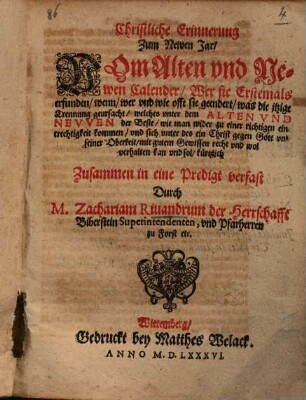 86
4
Christliche Erinnerung
Zum Newen Jar/
VOm Alten vnd Ne-
wen Calender/ Wer sie Erstemals
erfunden/ wenn/ wer vnd wie offt sie geendert/ was die itzige
Trennung geursacht/ welches vnter dem ALTEN VND
NEVVEN der Beste/ wie man wider zu einer richtigen ein-
trechtigkeit kommen/ vnd sich vnter des ein Christ gegen Gott vnd
seiner Oberkeit/ mit gutem Gewissen recht vnd wol
verhalten kan vnd sol/ kürtzlich
Zusammen in eine Predigt verfast
Durch
M. Zachariam Riuandrum der Herrschafft
Biberstein Superintendenten, vnd Pfarherren
zu Forst etc.
Wittemberg/
Gedruckt bey Matthes Welack.
ANNO M. D. LXXXVI.